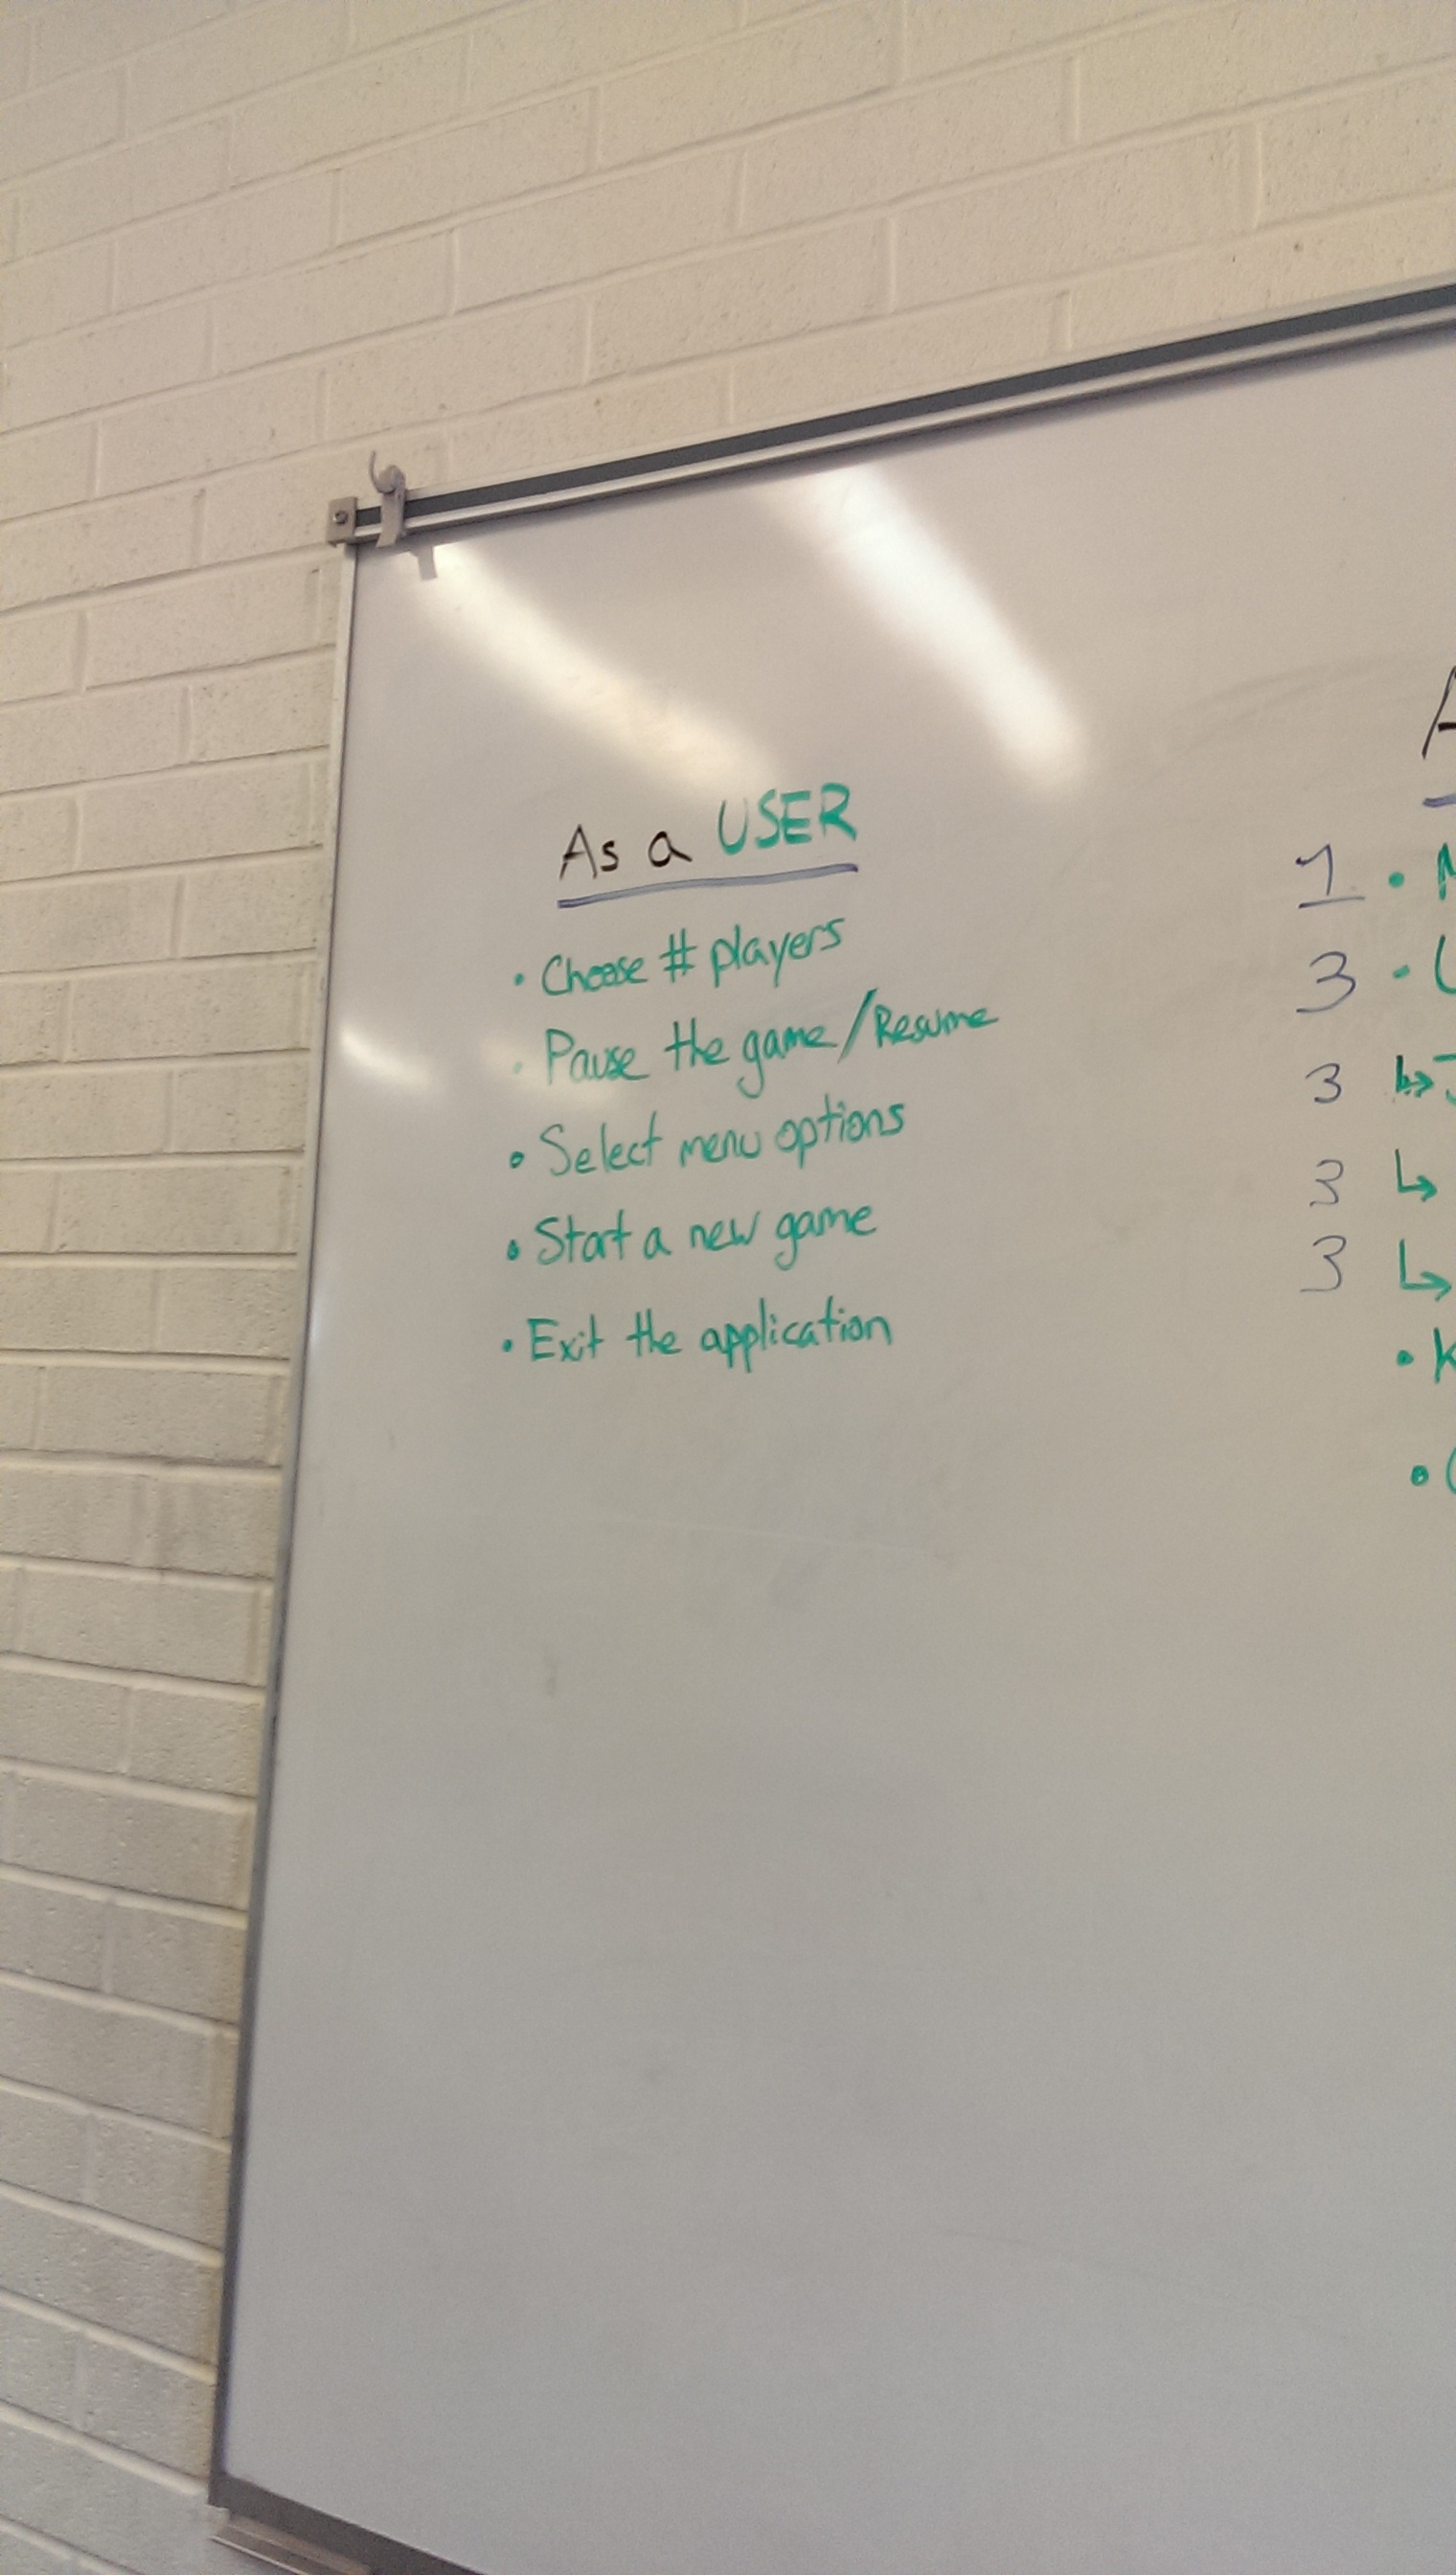 As a USER
• Choose # players
• Pause the game/Resume
• Select menu options
• Start a new game
• Exit the application
1 •
3 •
3 ↳
3 ↳
3 ↳